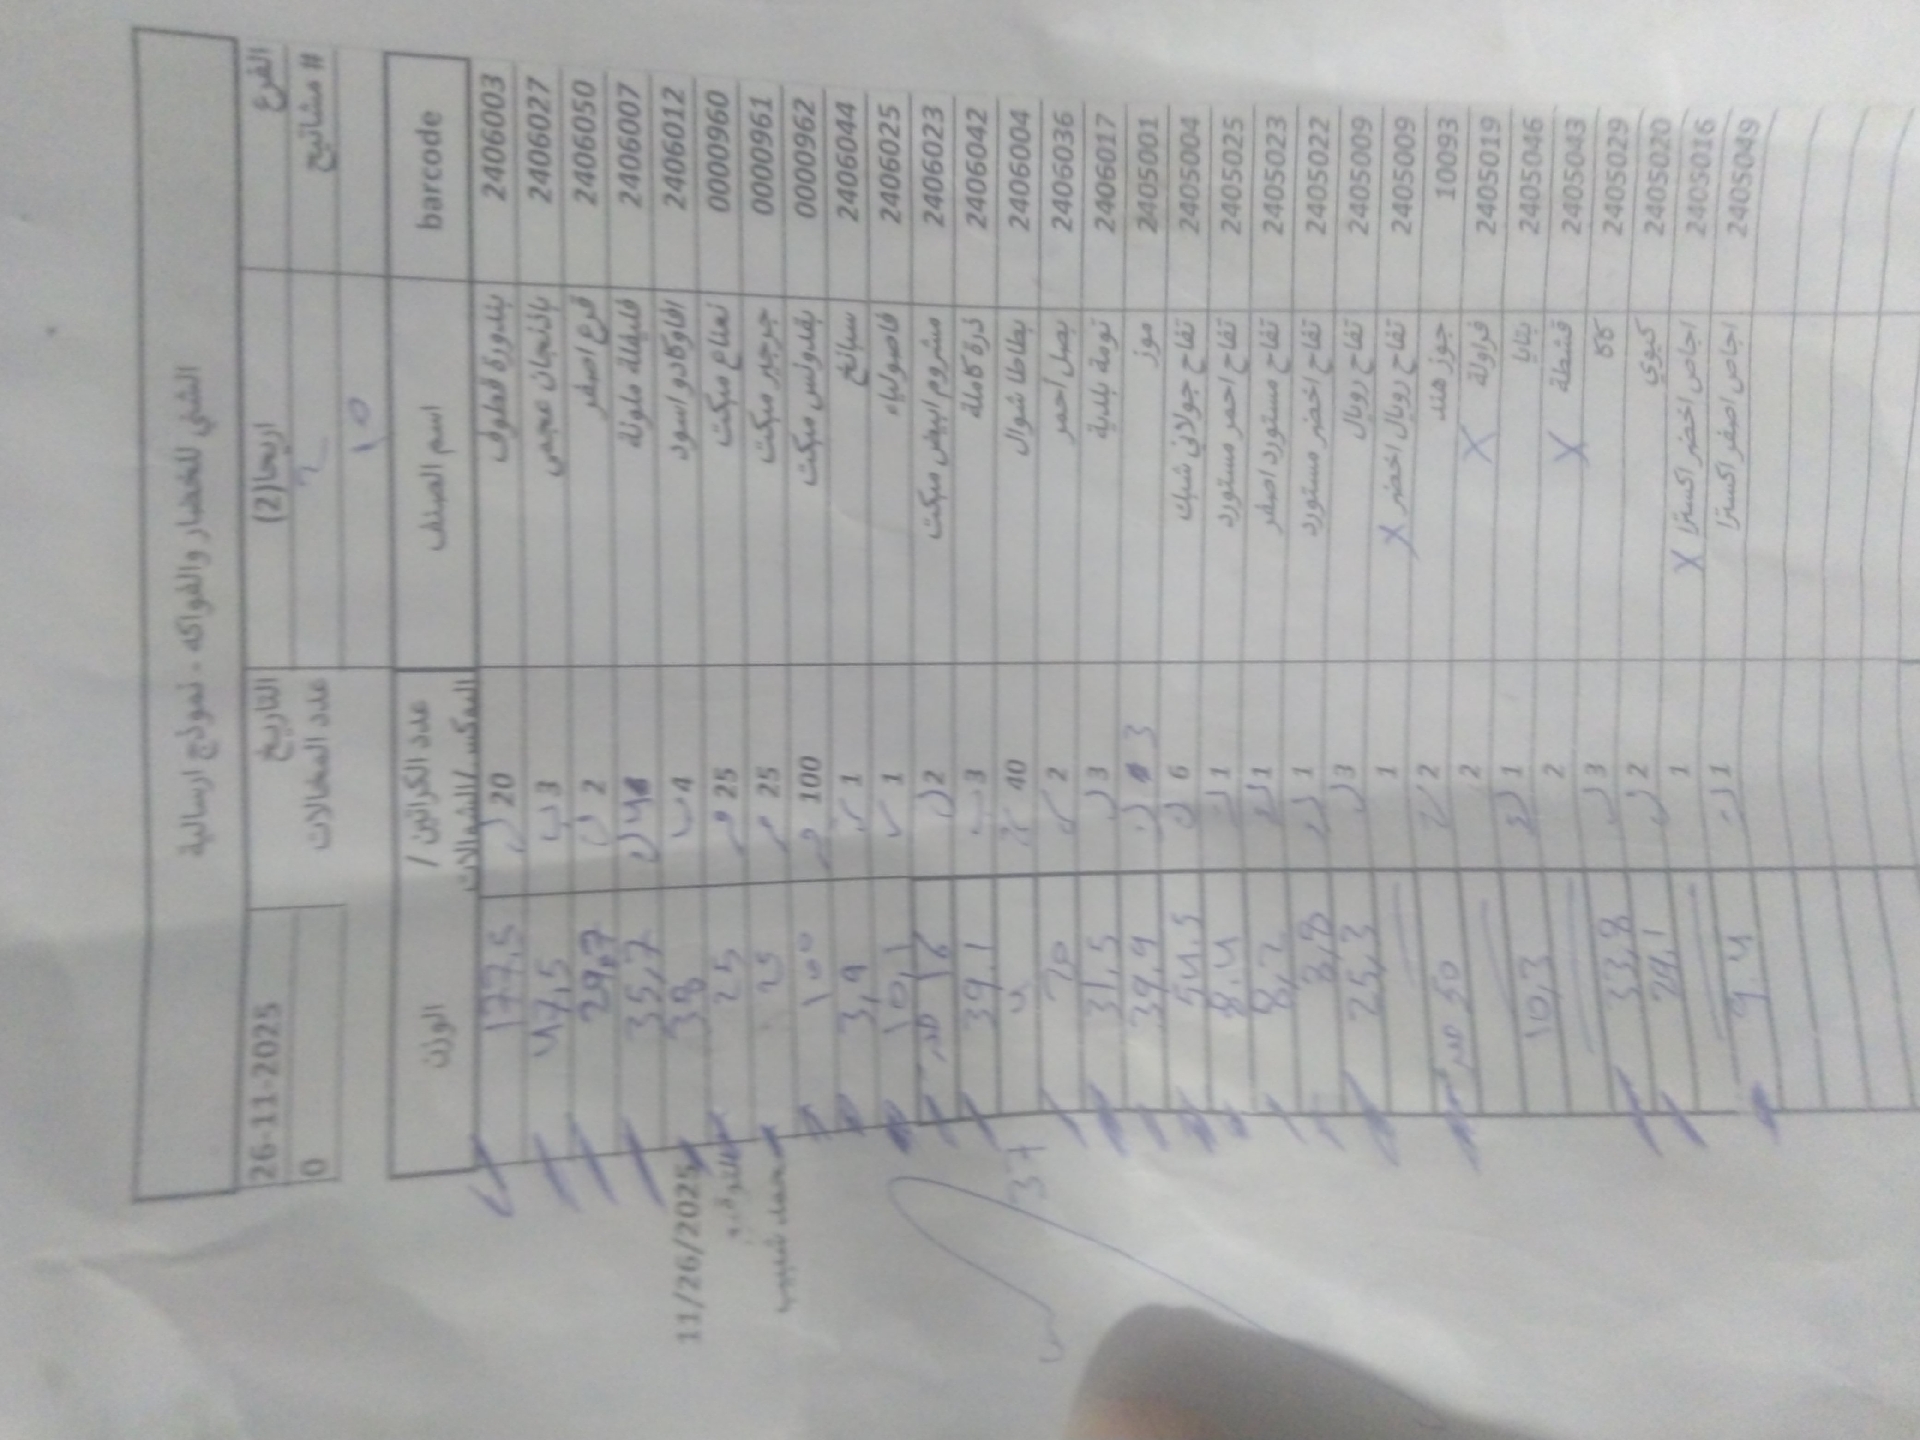 الشني للخضار والفواكه - نموذج ارسالية
الفرع اريحا(2) التاريخ 26-11-2025
# مشاتيح عدد المخالات 0
10
barcode اسم الصنف عدد الكراتين / البكس/الشوالات الوزن
2406003 بندورة قطوف 20 177,5
2406027 باذنجان عجمي 3 47,5
2406050 قرع اصفر 2 29,7
2406007 فليفلة ملونة 4 35,7
2406012 افاوكادو اسود 4 38
0000960 نعناع مبكت 25 25
0000961 جرجير مبكت 25 25
0000962 بقدونس مبكت 100 100
2406044 سبانخ 1 3,9
2406025 فاصولياء 1 10,1
2406023 مشروم ابيض مبكت 2
2406042 ذرة كاملة 3 39.1
2406004 بطاطا شوال 40
2406036 بصل احمر 2
2406017 ثومة بلدية 3 31,5
2405001 موز 3 39,9
2405004 تفاح جولاني شبك 6 54,5
2405025 تفاح احمر مستورد 1 8,4
2405023 تفاح مستورد اصفر 1 8,2
2405022 تفاح اخضر مستورد 1 8,8
2405009 تفاح رويال 3 25,3
2405009 تفاح رويال اخضر X 1
10093 جوز هند 2 50 عدد
2405019 فراولة X 2
2405046 بتايا 1 10,3
2405043 قشطة X 2
2405029 كاكا 3 33,8
2405020 كيوي 2 29,1
2405016 اجاص اخضر اكسترا X 1
2405049 اجاص اصفر اكسترا 1 9,4
11/26/2025
التوقيع
محمد شبيب
37